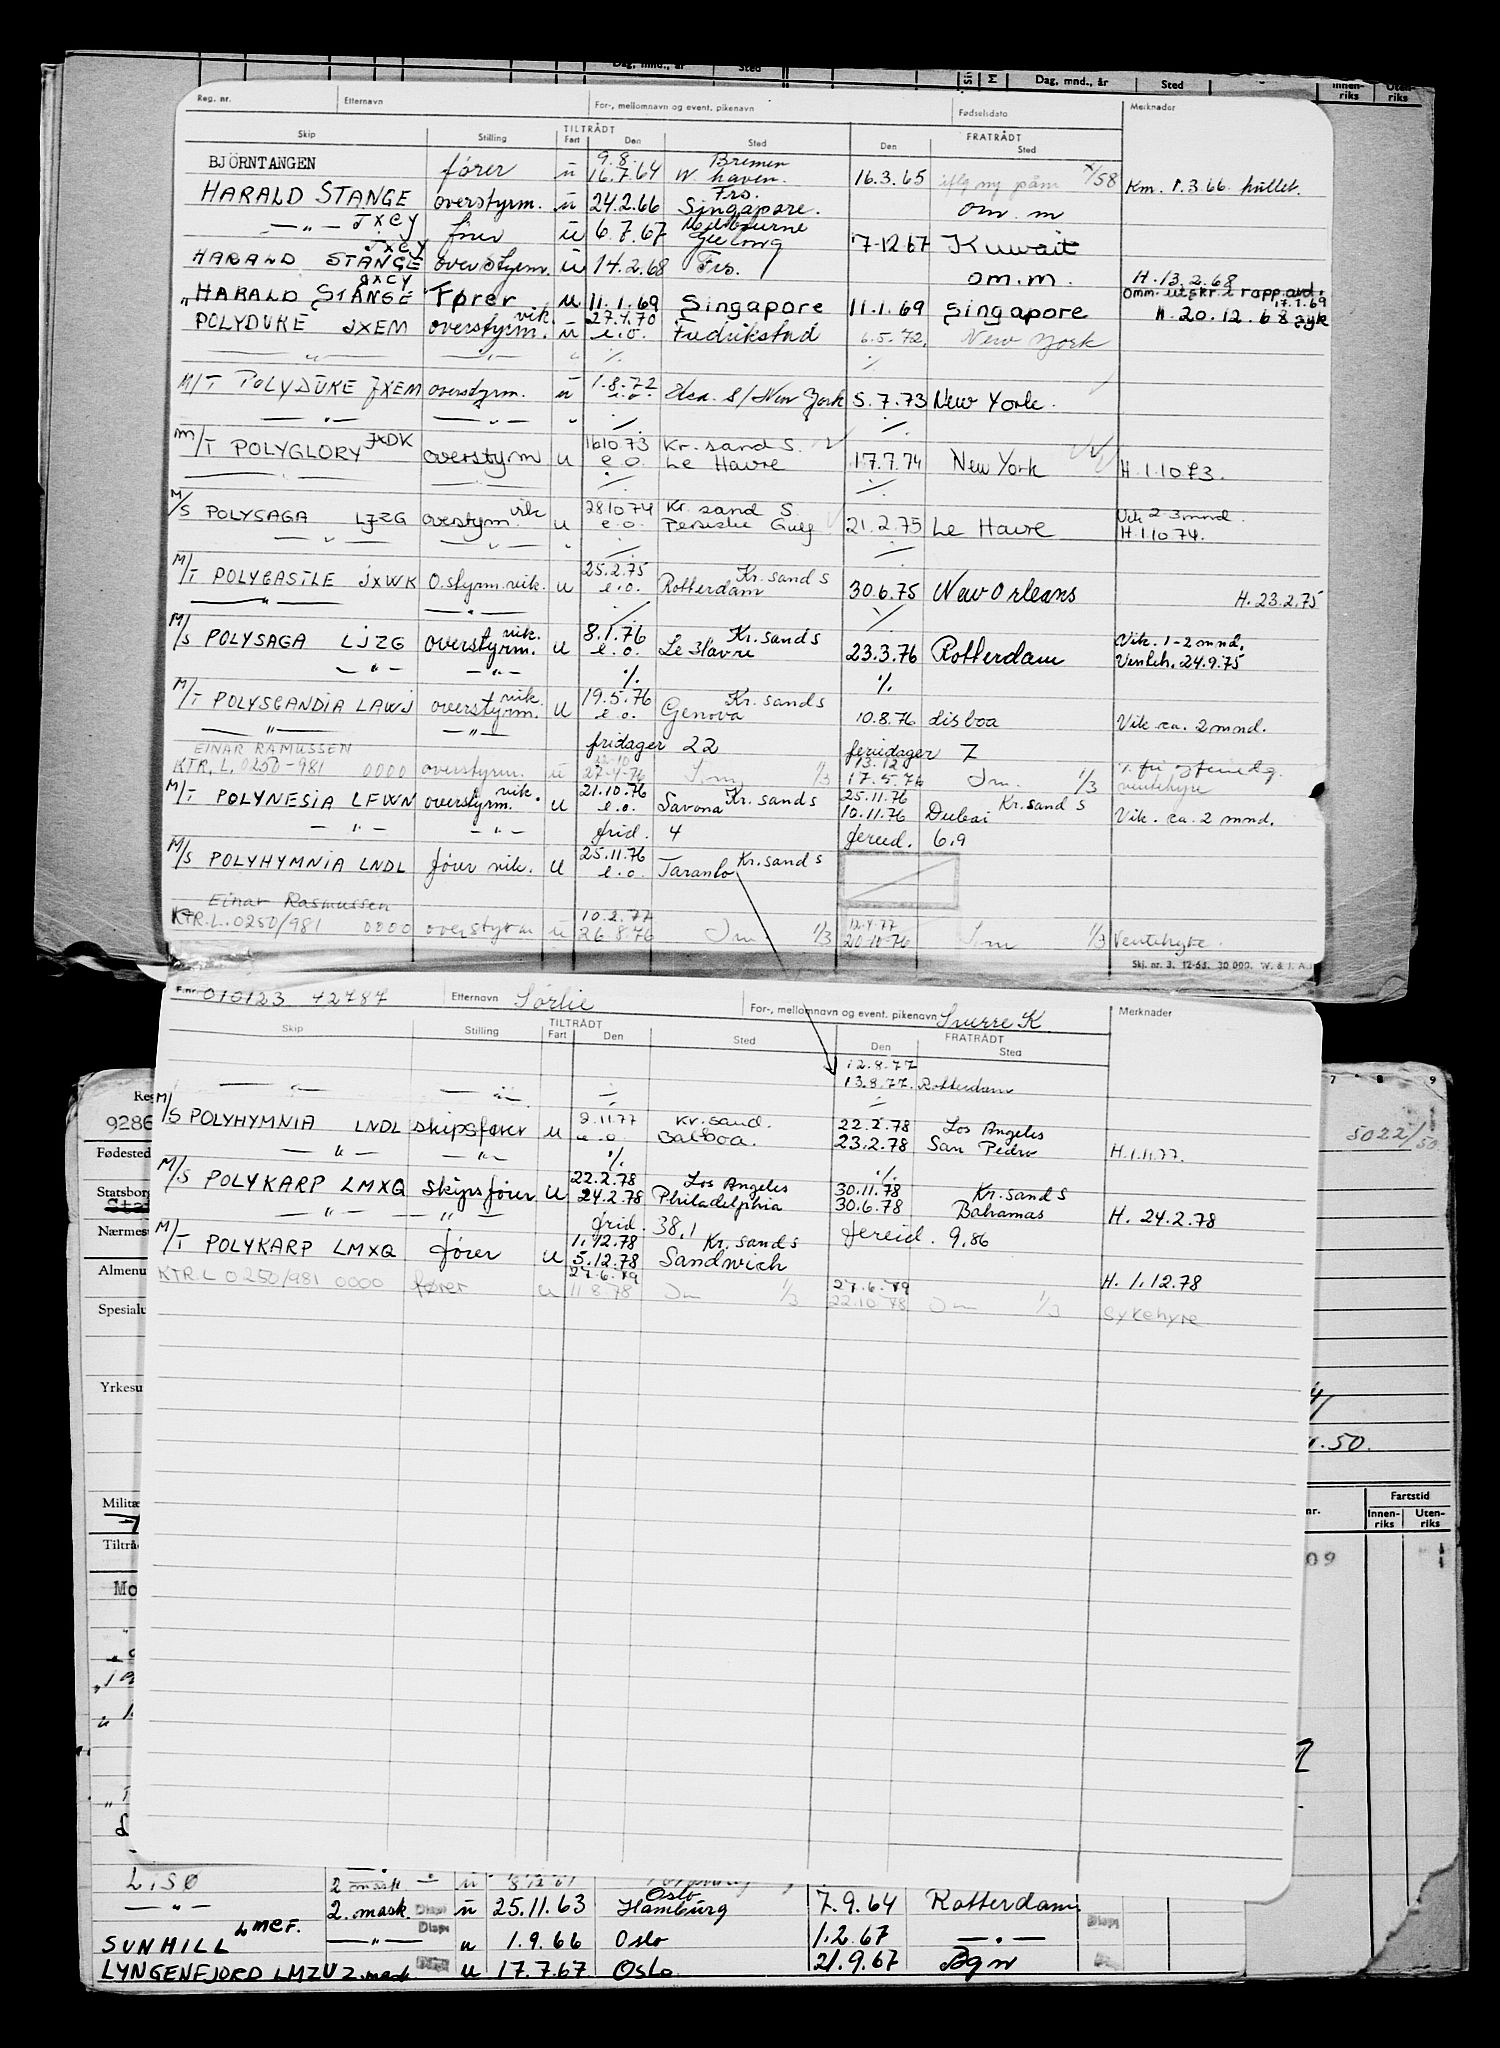 Dag, mnd., år Sted Dag, mnd., år Sted Innen-riks Uten-riks
Reg. nr. Etternavn For-, mellomnavn og event. pikenavn Fødselsdato Merknader
TILTRÅDT FRATRÅDT
Skip Stilling Fart Den Sted Den Sted
9.8. Bremen
BJÖRNTANGEN fører u 16.7.64 W. haven. 16.3.65 x/58 Km. 1.3.66. hullet.
Frs.
HARALD STANGE overstyrm. u 24.2.66 Singapore. om. m
Melbourne
— " — JXCY fører u 6.7.67 Geelong 7-12 67 Kuwait
JXCY
HARALD STANGE overstyrm u 14.2.68 Frs. om.m. H. 13.2.68
JXCY
" HARALD STANGE Fører u 11.1.69 Singapore 11.1.69 Singapore Omm. utskr. i rapp.avd. 17.1.69
vik. 27.4.70 H. 20.12.68 syk
POLYDUKE JXEM overstyrm. u e.o. Fredrikstad 6.5.72. New York
— " — — " — " ./. ./.
1.8.72
M/T POLYDUKE JXEM overstyrm. u e.o. S/New York 5.7.73 New York.
— " — — " — " ./. ./.
JXDK 16 10 73 Kr. sand S.
M/T POLYGLORY overstyrm u e.o. Le Havre 17.7.74 New York H. 1.10.73.
./. ./.
vik 28 10 74 Kr. sand S. Vik 2-3 mnd.
M/S POLYSAGA LJZG overstyrm. u e.o. Persiske Gulf 21.2.75 Le Havre H. 1.10 74.
— " — — " — " ./. ./.
25.2.75 Kr. sand S
M/T POLYCASTLE JXWK O.styrm.vik. u e.o. Rotterdam 30.6.75 New Orleans H. 23.2.75
— " — — " — ./. ./.
vik. 8.1.76 Kr. sand S Vik. 1-2 mnd.
M/S POLYSAGA LJZG overstyrm. u e.o. Le Havre 23.3.76 Rotterdam Venteh. 24.9.75
— " — — " — ./. ./.
vik. 19.5.76 Kr. sand S
M/T POLYSCANDIA LAWJ overstyrm. u e.o. Genova 10.8.76 Lisboa Vik ca. 2 mnd.
— " — — " — fridager 22 feriedager 7
EINAR RAMUSSEN 13.12
KTR. L. 0250-981 0000 overstyrm. u 27-4-76 Im 1/3 17.5.76 Im. 1/3 ventehyre
vik. 21.10.76 25.11.76
M/T POLYNESIA LFWN overstyrm. u e.o. Savona Kr. sand S 10.11.76 Dubai Kr. sand S Vik. ca. 2 mnd.
— " — — " — frid. 4 feried. 6.9
25.11.76
M/S POLYHYMNIA LNDL fører vik. u e.o. Taranto Kr. sand S
Einar Rasmussen 10.2.77 12.4.77
KTR.L.0250/981 0000 overstyrm u 26.8.76 Im. 1/3 20-10-76 Im 1/3 Ventehyre.
Skj. nr. 3. 12-65. 30 000. W. & J. A.
F.nr. 010123 42787 Etternavn Sørlie For-, mellomnavn og event. pikenavn Snurre K. Merknader
TILTRÅDT FRATRÅDT
Skip Stilling Fart Den Sted Den Sted
12.8.77
— " — — " — ./. 13.8.77. Rotterdam
./.
2.11.77 Kr. sand. 22.2.78 Los Angeles
M/S POLYHYMNIA LNDL skipsfører u e.o. Balboa. 23.2.78 San Pedro H. 1.11.77.
— " — — " — ./. ./.
22.2.78 Los Angeles 30.11.78 Kr. sand S
M/S POLYKARP LMXQ Skipsfører u 24.2.78 Philadelphia 30.6.78 Bahamas H. 24.2.78
— " — — " — frid. 38,1 fereid. 9.86
1.12.78 Kr. sand S
M/T POLYKARP LMXQ fører u 5.12.78 Sandwich H. 1.12.78
27.6.79 27.6.79
KTR.L 0250/981 0000 fører u 11 8.78 Im 1/3 22.10.78 Im 1/3 sykehyre
7 8 9
9286
5022/50
Fødested
Statsborg
Nærmest
Almenu
Spesialu
Yrkesu
.50.
Militæ
Fartstid
Innen-riks Uten-riks
nr.
Tiltråd
09
Mo
LISØ 2 mask — " — u
Oslo
— " — 2. mask. Disp: u 25.11.63 Hamburg 7.9.64 Rotterdam
LMCF. Disp: Disp:
SUNHILL — " — u 1.9.66 Oslo 1.2.67 — " —
LYNGENFJORD LMZU 2. mask u 17.7.67. Oslo. 21.9.67 Bgn